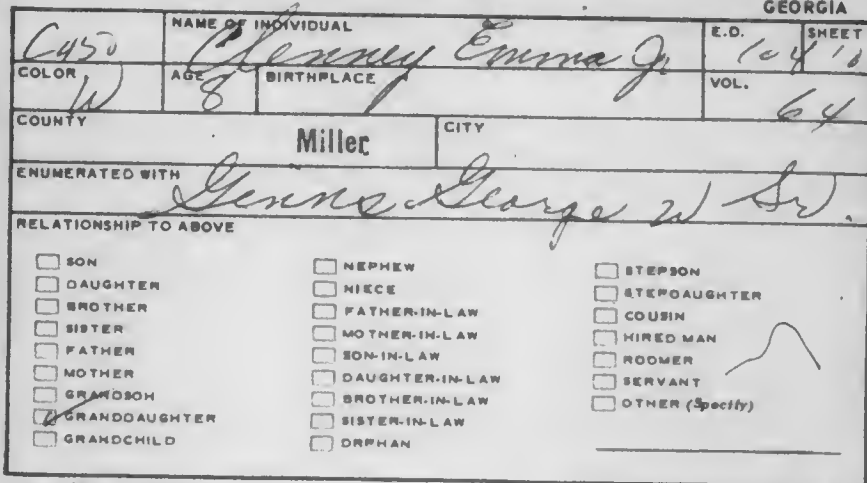 GEORGIA
C450
NAME OF INDIVIDUAL
Clenney Emma Jr
E.D.
104
SHEET
10
COLOR
W
AGE
8
BIRTHPLACE
VOL.
64
COUNTY
Miller
CITY
ENUMERATED WITH
George W Sr.
RELATIONSHIP TO ABOVE
SON
DAUGHTER
BROTHER
SISTER
FATHER
MOTHER
GRANDSON
GRANDDAUGHTER
GRANDCHILD
NEPHEW
NIECE
FATHER-IN-LAW
MOTHER-IN-LAW
SON-IN-LAW
DAUGHTER-IN-LAW
BROTHER-IN-LAW
SISTER-IN-LAW
ORPHAN
STEPSON
STEPDAUGHTER
COUSIN
HIRED MAN
ROOMER
SERVANT
OTHER (Specify)